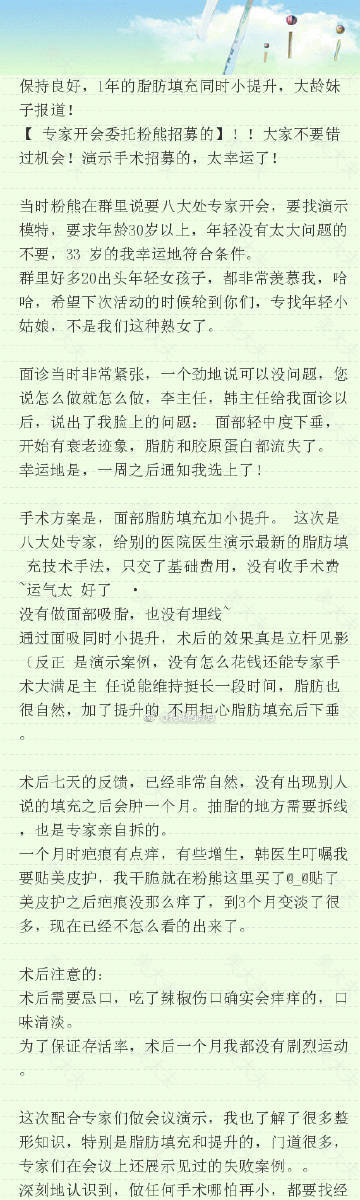 保持良好，1年的脂肪填充同时小提升，大龄妹
子报道！
【 专家开会委托粉熊招募的】！！大家不要错
过机会！演示手术招募的，太幸运了！
当时粉熊在群里说要八大处专家开会，要找演示
模特，要求年龄30岁以上，年轻没有太大问题的
不要，33 岁的我幸运地符合条件。
群里好多20出头年轻女孩子，都非常羡慕我，哈
哈，希望下次活动的时候轮到你们，专找年轻小
姑娘，不是我们这种熟女了。
面诊当时非常紧张，一个劲地说可以没问题，您
说怎么做就怎么做，李主任，韩主任给我面诊以
后，说出了我脸上的问题： 面部轻中度下垂，
开始有衰老迹象，脂肪和胶原蛋白都流失了。
幸运地是，一周之后通知我选上了！
手术方案是，面部脂肪填充加小提升。 这次是
八大处专家，给别的医院医生演示最新的脂肪填
充技术手法，只交了基础费用，没有收手术费
~运气太 好了 •
没有做面部吸脂，也没有埋线~
通过面吸同时小提升，术后的效果真是立杆见影
（反正 是演示案例，没有怎么花钱还能专家手
术大满足主 任说能维持挺长一段时间，脂肪也
很自然，加了提升的 不用担心脂肪填充后下垂
。
术后七天的反馈，已经非常自然，没有出现别人
说的填充之后会肿一个月。抽脂的地方需要拆线
，也是专家亲自拆的。
一个月时疤痕有点痒，有些增生，韩医生叮嘱我
要贴美皮护，我干脆就在粉熊这里买了@_@贴了
美皮护之后疤痕没那么痒了，到3个月变淡了很
多，现在已经不怎么看的出来了。
术后注意的：
术后需要忌口，吃了辣椒伤口确实会痒痒的，口
味清淡。
为了保证存活率，术后一个月我都没有剧烈运动
。
这次配合专家们做会议演示，我也了解了很多整
形知识，特别是脂肪填充和提升的，门道很多，
专家们在会议上还展示见过的失败案例。。
深刻地认识到，做任何手术哪怕再小，都要找经